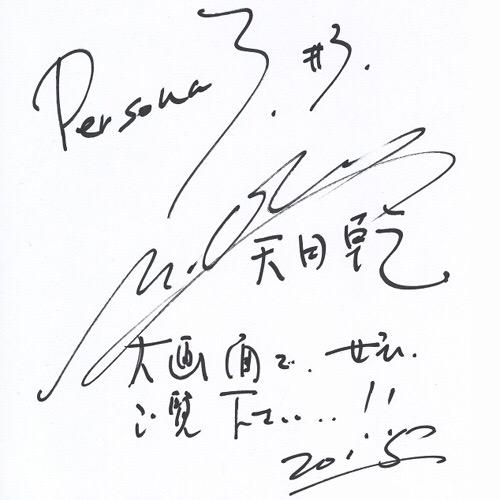 Persona 3. #3.
天田乾
大画面で、ぜひ.
ご覧下さい...!!
2015